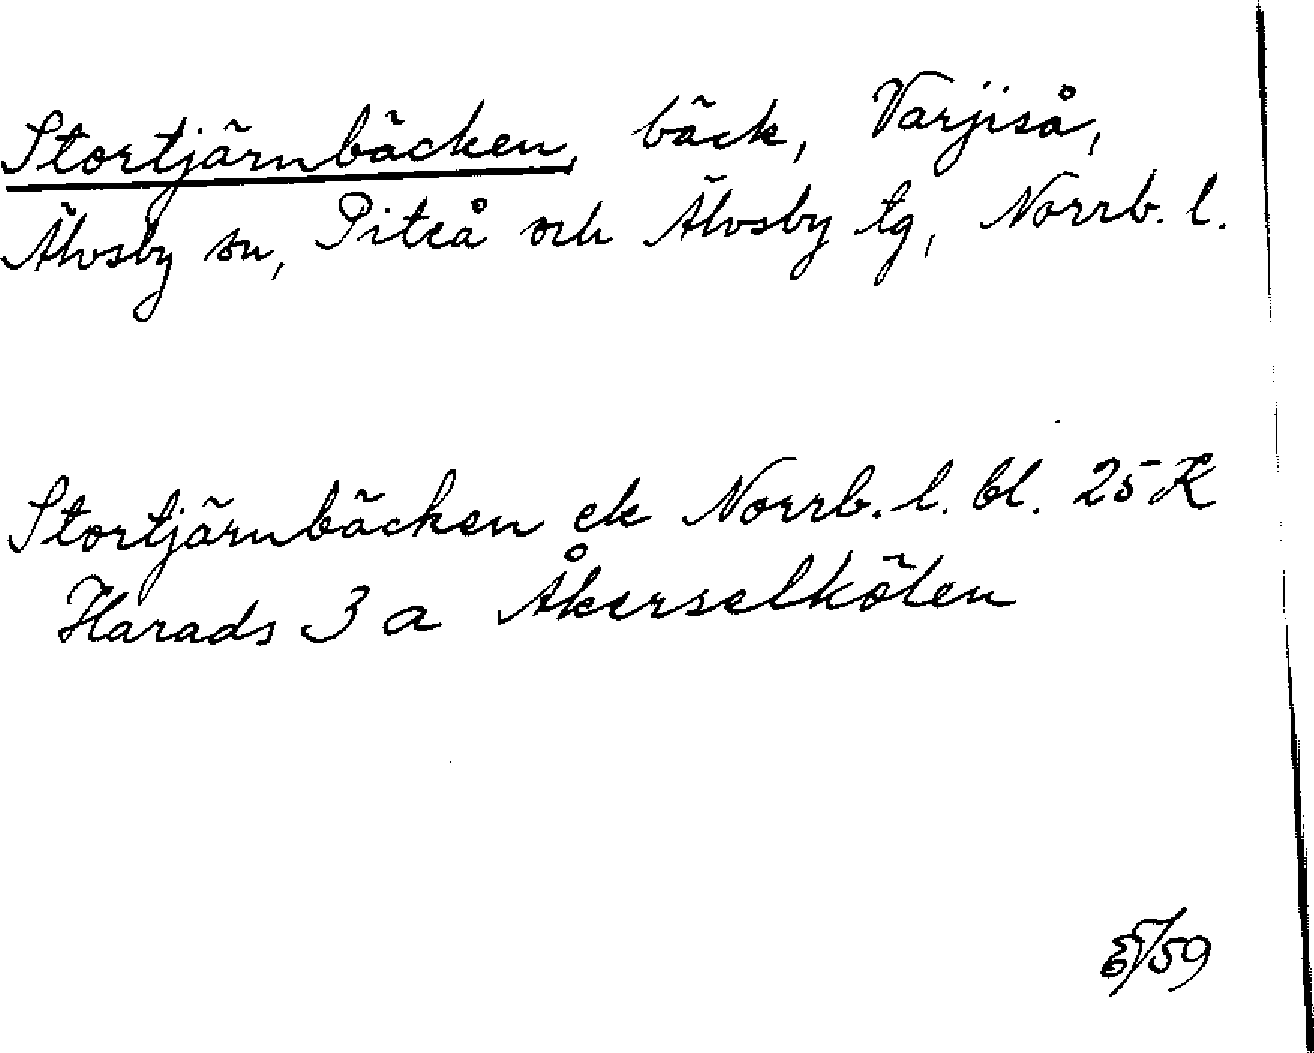 Stortjärnbäcken, bäck, Varjiså,
Älvsby sn, Piteå och Älvsby tg, Norrb. l.
Stortjärnbäcken ek Norrb. l. bl. 25 K
Harads 3 a Åkerselkölen
/59